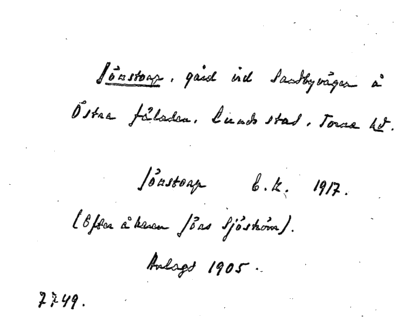 Jönstorp, gård vid Sandbyvägen å
Östra fäladen, Lunds stad, Torna hd.
Jönstorp E.k. 1917.
(Efter åkaren Jöns Sjöström).
Anlagt 1905.
7749.